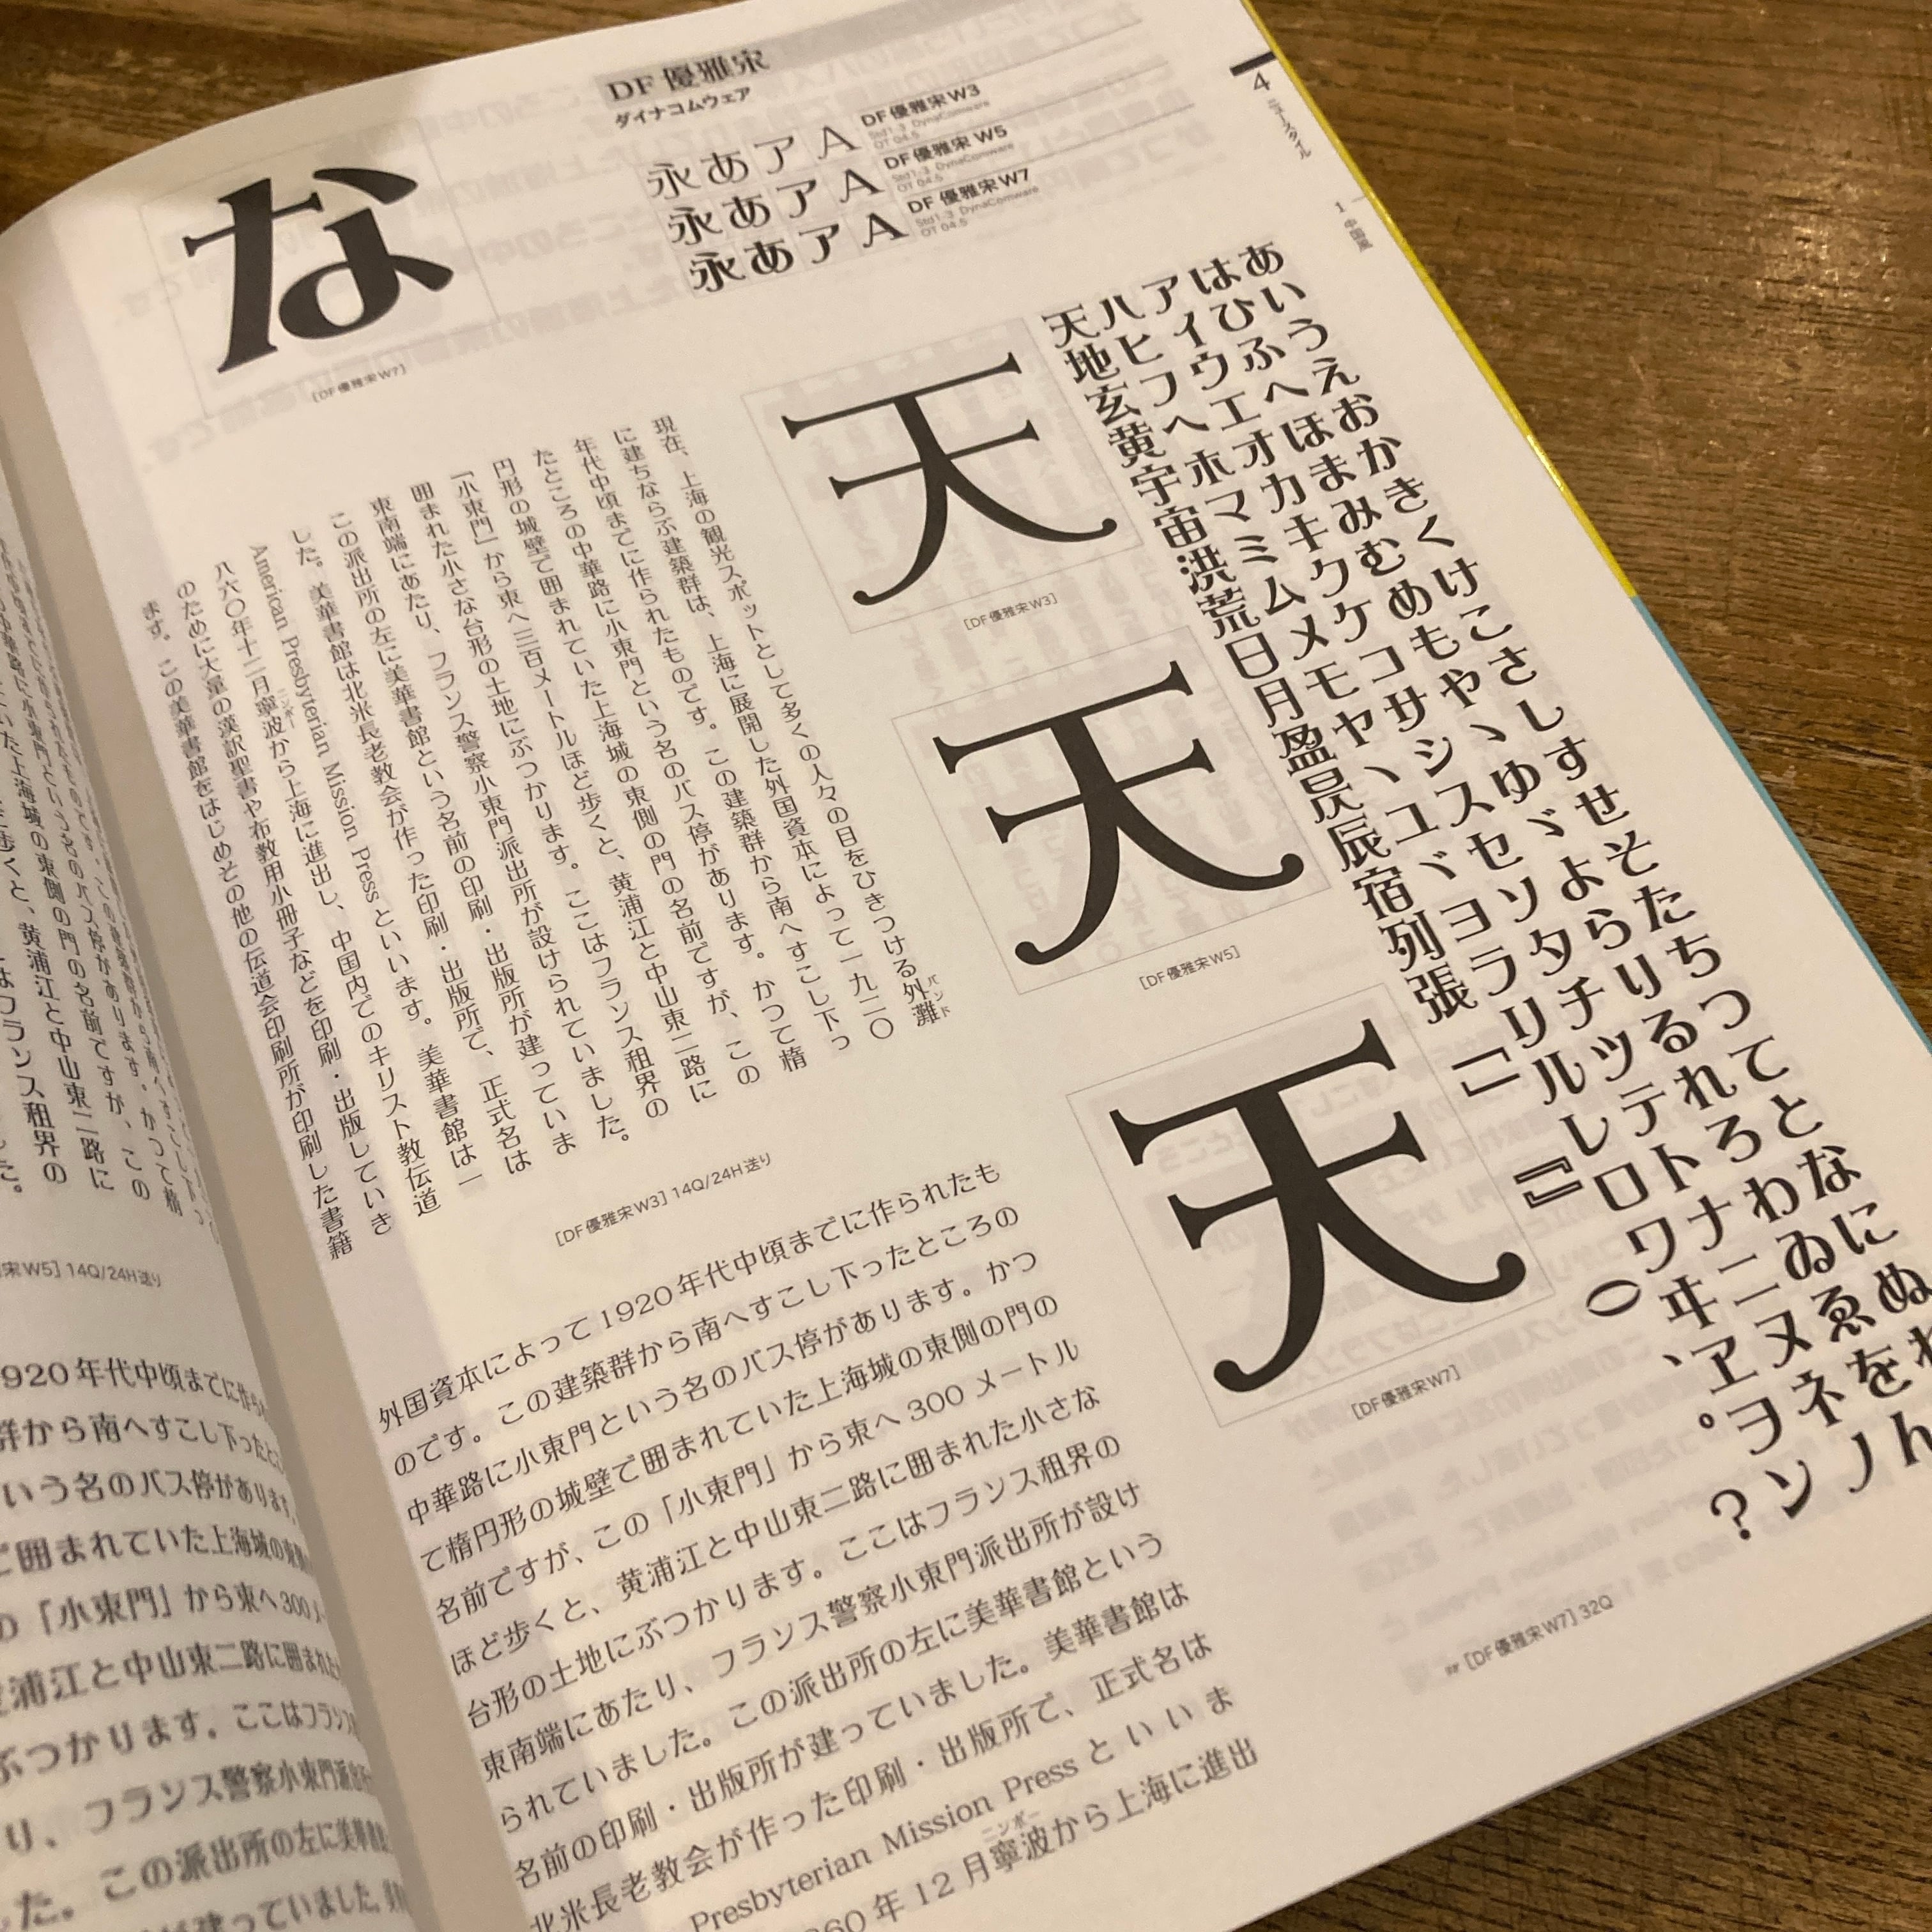 DF 優雅宋
ダイナコムウェア
永あアA
DF 優雅宋 W3
Std1-3 DynaComware
OT 04.5
永あアA
DF 優雅宋 W5
Std1-3 DynaComware
OT 04.5
永あアA
DF 優雅宋 W7
Std1-3 DynaComware
OT 04.5
4
ニュースタイル
1
中国風
な
[DF優雅宋W7]
あいうえおかきくけこさしすせそたちつてとなにぬね
はひふへほまみむめもや、ゆゞよらりるれろわゐゑをん
アイウエオカキクケコサシスセソタチツテトナニヌネノ
ハヒフヘホマミムメモヤ、ユヾヨラリルレロワヰヱヲン
天地玄黄宇宙洪荒日月盈昃辰宿列張「」『』()、。?
天
[DF優雅宋W3]
天
[DF優雅宋W5]
天
[DF優雅宋W7]
☞ [DF優雅宋W7] 32Q
現在、上海の観光スポットとして多くの人々の目をひきつける外灘
バンド
に建ちならぶ建築群は、上海に展開した外国資本によって一九二〇
年代中頃までに作られたものです。この建築群から南へすこし下っ
たところの中華路に小東門という名のバス停があります。かつて楕
円形の城壁で囲まれていた上海城の東側の門の名前ですが、この
「小東門」から東へ三百メートルほど歩くと、黄浦江と中山東二路に
囲まれた小さな台形の土地にぶつかります。ここはフランス租界の
東南端にあたり、フランス警察小東門派出所が設けられていました。
この派出所の左に美華書館という名前の印刷・出版所が建っていま
した。美華書館は北米長老教会が作った印刷・出版所で、正式名は
American Presbyterian Mission Press といいます。美華書館は一
八六〇年十二月寧波から上海に進出し、中国内でのキリスト教伝道
ニンポー
のために大量の漢訳聖書や布教用小冊子などを印刷・出版していき
ます。この美華書館をはじめその他の伝道会印刷所が印刷した書籍
[DF優雅宋W3] 14Q/24H送り
外国資本によって1920年代中頃までに作られたも
のです。この建築群から南へすこし下ったところの
中華路に小東門という名のバス停があります。かつ
て楕円形の城壁で囲まれていた上海城の東側の門の
名前ですが、この「小東門」から東へ300メートル
ほど歩くと、黄浦江と中山東二路に囲まれた小さな
台形の土地にぶつかります。ここはフランス租界の
東南端にあたり、フランス警察小東門派出所が設け
られていました。この派出所の左に美華書館という
名前の印刷・出版所が建っていました。美華書館は
北米長老教会が作った印刷・出版所で、正式名は
Presbyterian Mission Press といいま
ニンポー
860年12月寧波から上海に進出
宋W5] 14Q/24H送り
920年代中頃までに作られ
群から南へすこし下ったと
いう名のバス停があります
で囲まれていた上海城の東側
の「小東門」から東へ300メ
浦江と中山東二路に囲まれた
ぶつかります。ここはフランス
り、フランス警察小東門派出
した。この派出所の左に美華
建っていました。美